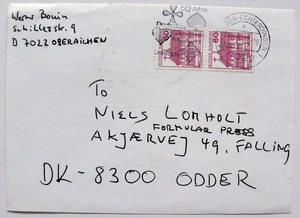 Werner Bonin
Schillerstr. 9
D 7022 OBERAICHEN
50 Jahre
60
60
To
NIELS LOMHOLT
FORMULAR PRESS
AKJÆRVEJ 49, FALLING
DK-8300 ODDER